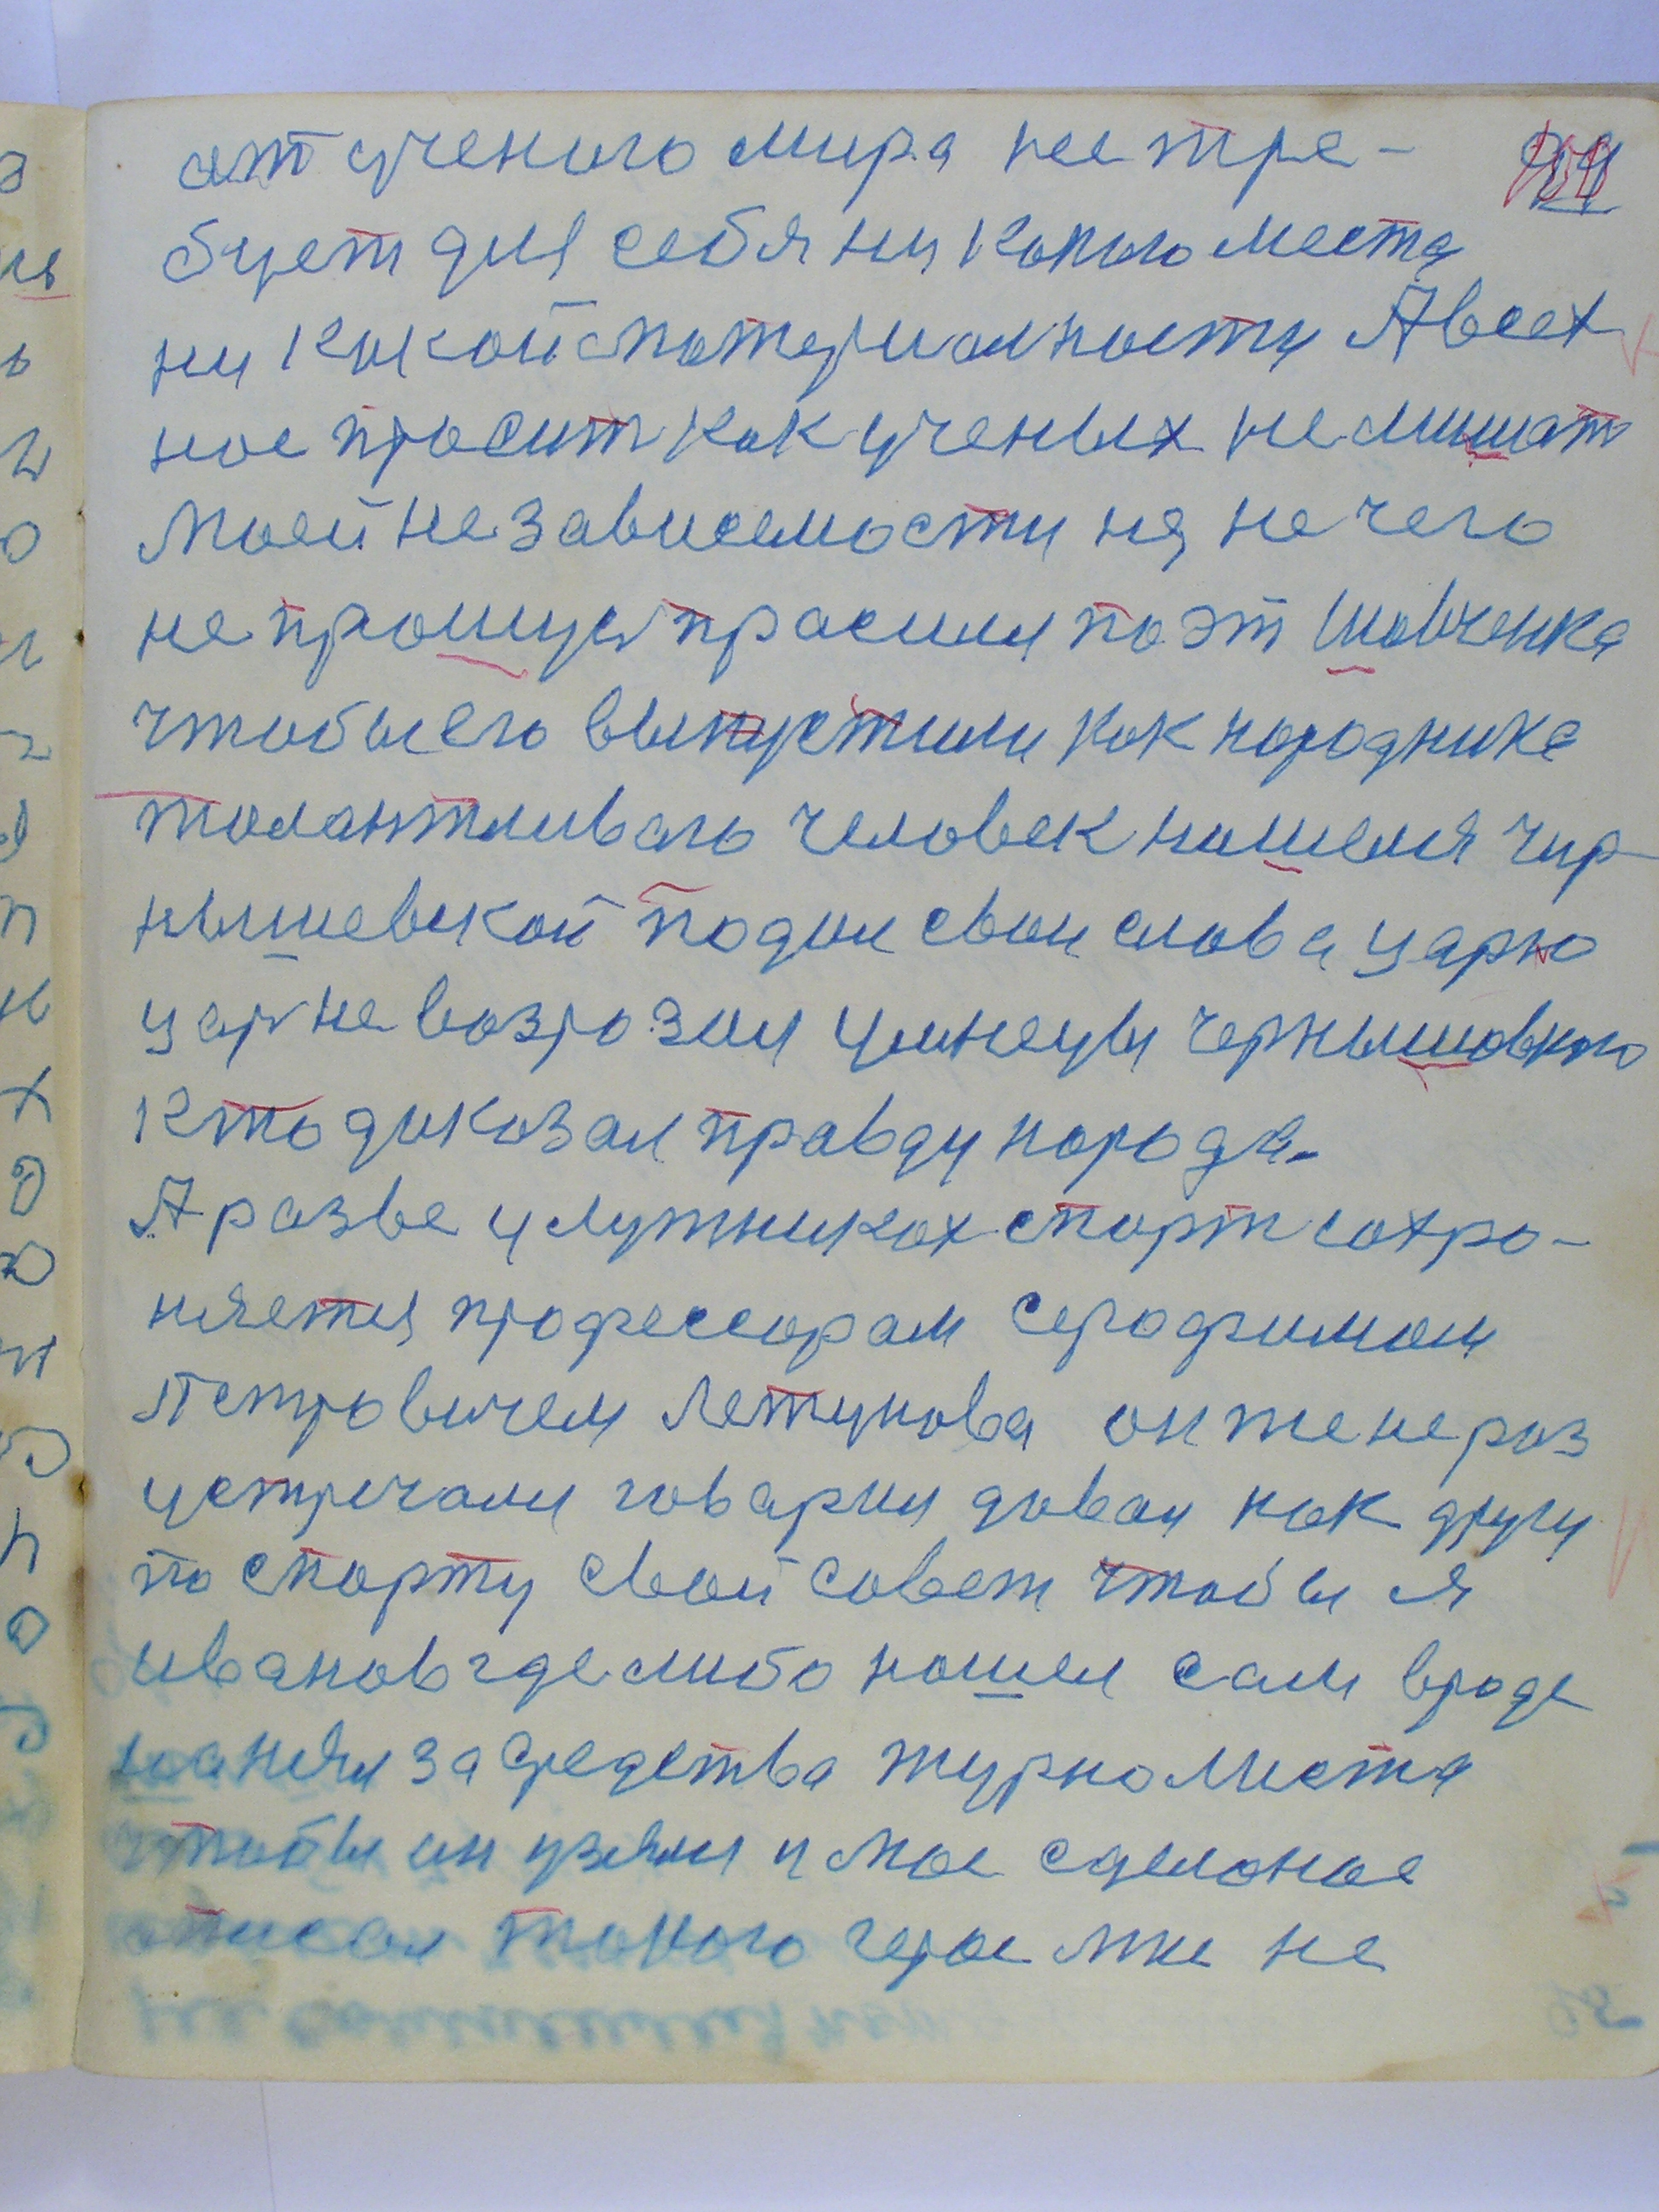 от ученого мира не тре-
бует для себя ни какого места
ни какой матерналности А всех
ное просит как ученых не мишат
моей не зависемости ня не чего
не прошу прасили поэт Шавченка
чтобы его выпустили как народника
толантливаго человек нашелся Чир-
нышевской подал свои слова царю
цар не возрозил Чернышовкого
Кто доказал правду народа.
А разве у лутниках спорт сохро-
няется професорам Серофимом
Петровичем Летунова он же не роз
устречали говарил давал как другу
по спорту свой совет чтобы я
иванов где либо нашел сам вроде
наняли за средства журномиста
чтобы он узяли и мое сделоное
описал такого герое мне не